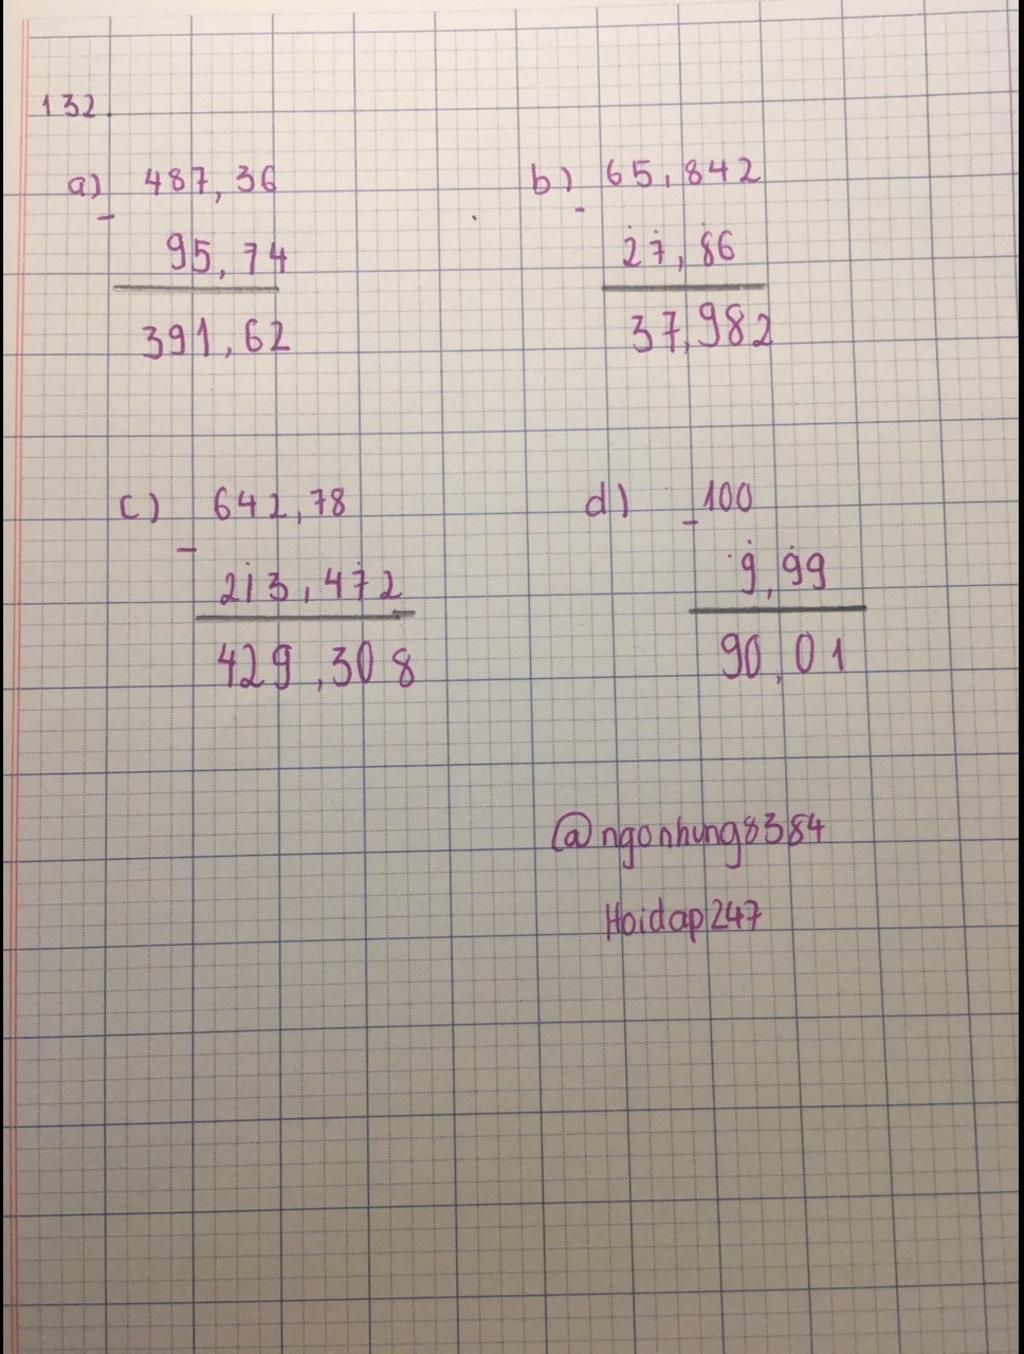 132.
a) 487,36
-
95,74
391,62
b) 65,842
-
27,86
37,982
c) 642,78
-
213,472
429,308
d) 100
-
9,99
90,01
@ngonhung8384
Hoidap247